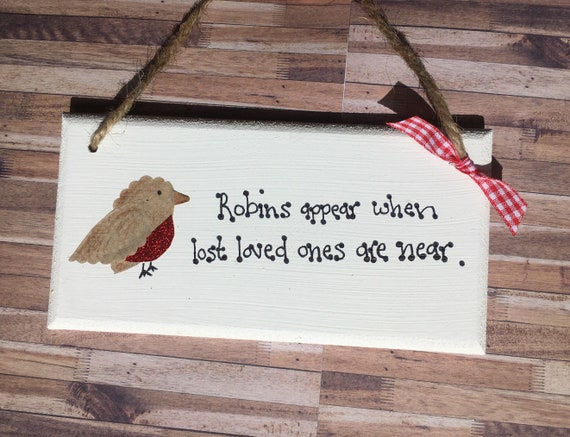 Robins appear when
lost loved ones are near.